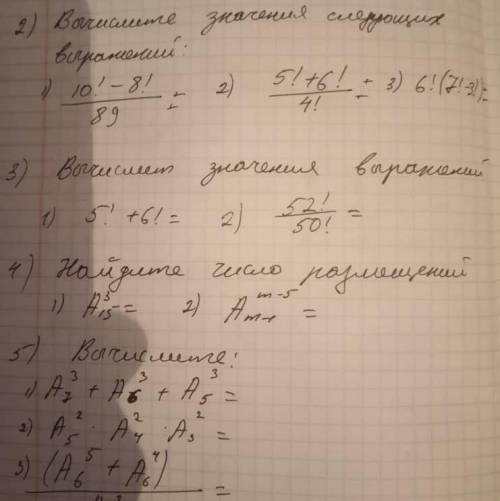 2) Вычислите значения следующих
выражений:
1) (10! - 8!)/89 = 2) (5! + 6!)/4! = 3) 6!(7! - 3!) =
3) Вычислит значения выражений
1) 5! + 6! = 2) 52!/50! =
4) Найдите число размещений
1) A₁₅³ = 2) Aₘ₋₁ᵐ⁻⁵ =
5) Вычислите:
1) A₇³ + A₆³ + A₅³ =
2) A₅² · A₄² · A₃² =
3) (A₆⁵ + A₆⁴) =